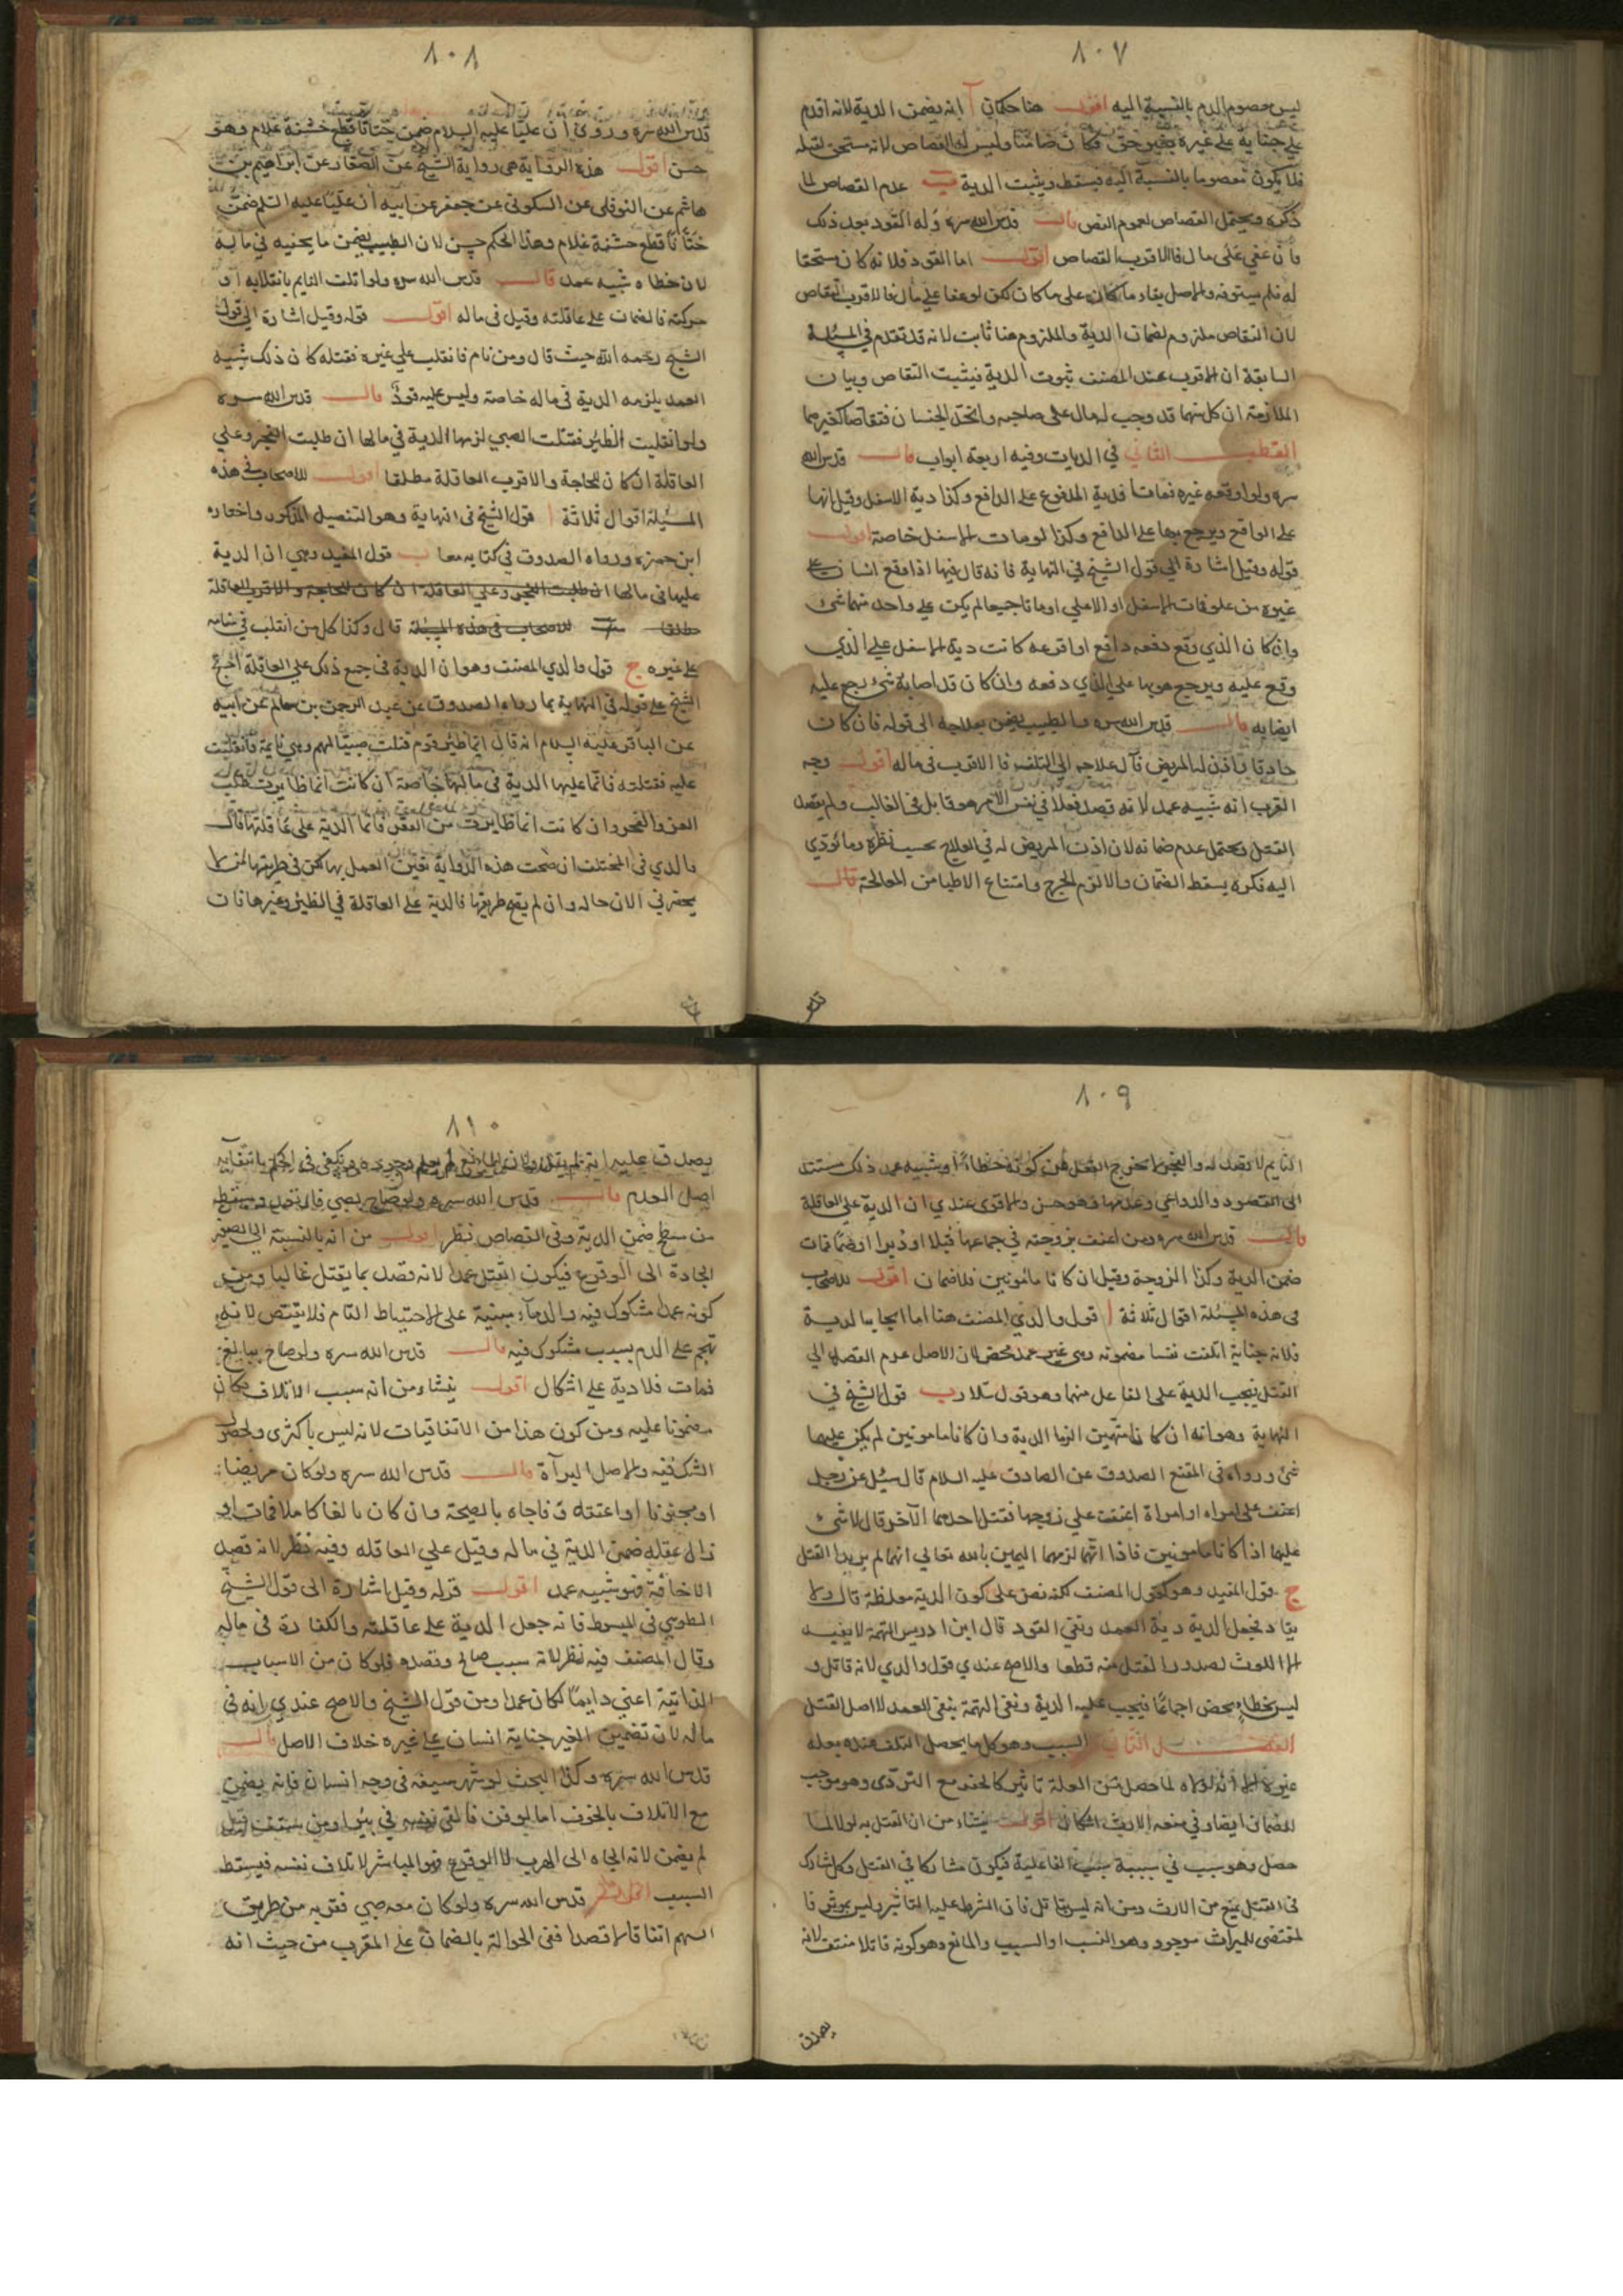 ٨٠٧
ليس معصوم الدم بالنسبة اليه اقول هنا حكمان آ انه يضمن الدية لانه اقدم
على جناية على غيره بغير حق فكان ضامنا وليس له القصاص لانه مستحق لقتله
فلا يكون معصوما بالنسبة اليه فيسقط ويثبت الدية ب عدم القصاص لما
ذكره ويحتمل القصاص لعموم النص قال قدس الله سره وله القود بعد ذلك
فان عفي على مال فالاقرب القصاص اقول اما القود فلانه كان مستحقا
له فلم يستوفه والاصل بقاء ما كان على ما كان لكن لو عفا على مال فالاقرب التقاص
لان التقاص ملزوم لضمان الدية والملزوم هنا ثابت لانه قد تقدم في المسئلة
السابقة ان الاقرب عند المصنف ثبوت الدية فيثبت التقاص وبيان
الملازمة ان كل منهما قد وجب له مال على صاحبه واتحد الجنسان فتقاصا كغيرهما
القطب الثاني في الديات وفيه اربعة ابواب قال قدس الله
سره ولو اوقعه غيره فماتا فدية المدفوع على الدافع وكذا دية الاسفل وقيل انها
على الواقع ويرجع بها على الدافع وكذا لو مات الاسفل خاصة اقول
قوله وقيل اشارة الى قول الشيخ في النهاية فانه قال فيها اذا وقع انسان على
غيره من علو فمات الاسفل او الاعلى او ماتا جميعا لم يكن على واحد منهما شيء
وان كان الذي وقع دفعه دافع او افزعه كانت دية الاسفل على الذي
وقع عليه ويرجع هو بها على الذي دفعه وان كان قد اصابه شيء رجع عليه
ايضا به قال قدس الله سره والطبيب يضمن بعلاجه الى قوله فان كان
حاذقا فاذن له المريض فآل علاجه الى التلف فالاقرب في ماله اقول وجه
القرب انه شبيه عمد لانه قصد فعلا في نفس الامر هو قاتل في الغالب ولم يقصد
القتل ويحتمل عدم ضمانه لان اذن المريض له في العلاج بحسب نظره وما يؤدي
اليه فكره يسقط الضمان والا لزم الحرج وامتناع الاطبا من المعالجة قال
٨٠٨
قدس الله سره وروي ان عليا عليه السلام ضمن ختانا قطع حشفة غلام وهو
حسن اقول هذه الرواية هي رواية الشيخ عن الصفار عن ابراهيم بن
هاشم عن النوفلي عن السكوني عن جعفر عن ابيه ان عليا عليه السلم ضمن
ختانا قطع حشفة غلام وهذا الحكم حسن لان الطبيب يضمن ما يجنيه في ماله
لان خطاه شبيه عمد قال قدس الله سره ولو اتلف النايم بانقلابه او
حركته فالضمان على عاقلته وقيل في ماله اقول قوله وقيل اشارة الى قول
الشيخ رحمه الله حيث قال ومن نام فانقلب على غيره فقتله كان ذلك شبيه
العمد يلزمه الدية في ماله خاصة وليس عليه قود قال قدس الله سره
ولو انقلبت الظئر فقتلت الصبي لزمها الدية في مالها ان طلبت الفخر وعلى
العاقلة ان كان للحاجة والاقرب العاقلة مطلقا اقول للاصحاب في هذه
المسئلة اقوال ثلاثة ا قول الشيخ في النهاية وهو التفصيل المذكور واختاره
ابن حمزه ورواه الصدوق في كتابه معا ب قول المفيد وهي ان الدية
عليها في مالها ان طلبت الفخر وعلى العاقلة ان كان للحاجة والاقرب العاقلة
مطلقا للاصحاب في هذه المسئلة قال وكذا كل من انقلب في منامه
على غيره ج قول والدي المصنف وهو ان الدية في جمع ذلك على العاقلة احتج
الشيخ على قوله في النهاية بما رواه الصدوق عن عبد الرحمن بن سالم عن ابيه
عن الباقر عليه السلام انه قال ايما ظئر قوم قتلت صبيا لهم وهي نايمة فانقلبت
عليه فقتلته فانما عليها الدية في مالها خاصة ان كانت انما ظايرت طلب
العز والفخر وان كانت انما ظايرت من الفقر فانما الدية على عاقلتها قال
والدي في المختلف ان صحت هذه الرواية تعين العمل بها لكن في طريقها من لا
يحضرني الان حاله وان لم يصح طريقها فالدية على العاقلة في الظئر وغيرها فان
٨٠٩
النايم لا قصد له والفخر لا يخرج الفعل عن كونه خطاءً او شبيه عمد ذلك مستند
الى القصود والدواعي وعدمها وهو حسن والاقوى عندي ان الدية على العاقلة
قال قدس الله سره ومن اعنف بزوجته في جماعها قبلا او دبرا او ضما فمات
ضمن الدية وكذا الزوجة وقيل ان كانا مامونين فلا ضمان اقول للاصحاب
في هذه المسئلة اقوال ثلاثة ا قول والدي المصنف هنا اما ايجاب الدية
فلانه جناية اتلفت نفسا مضمونة وهي غير عمد محض لان الاصل عدم القصد الى
القتل فيجب الدية على الفاعل منهما وهو قول سلار ب قول الشيخ في
النهاية وهو انه ان كانا متهمين الزما الدية وان كانا مامونين لم يكن عليهما
شيء ورواه في المقنع الصدوق عن الصادق عليه السلام قال سئل عن رجل
اعنف على امراه او امراة اعنفت على زوجها فقتل احدهما الآخر قال لا شيء
عليهما اذا كانا مامونين فاذا اتهما لزمهما اليمين بالله تعالى انهما لم يريدا القتل
ج قول المفيد وهو كقول المصنف لكنه نص على كون الدية مغلظة قال ولا
يقاد بجعل الدية دية العمد ونفي القود قال ابن ادريس التهمة لا يفيد
الا اللوث لصدور القتل منه قطعا والاصح عندي قول والدي لانه قاتل و
ليس بخطاء محض اجماعا فيجب عليه الدية ونفي التهمة ينفي العمد لا اصل القتل
الفصل الثاني السبب وهو كل ما يحصل التلف عنده بعلة
غيره الا انه لولاه لما حصل من العلة تاثير كالحفر مع التردي وهو موجب
للضمان ايضا وفي منعه الارث اشكال اقول ينشاء من ان القتل به لولا لما
حصل وهو سبب في سببية سبب الفاعلية فيكون مشاركا في القتل وكل مشارك
في القتل يمنع من الارث ومن انه ليس بقاتل فان الشرط عليه التاثير وليس بموثر فا
لمقتضى للميراث موجود وهو النسب او السبب والمانع وهو كونه قاتلا منتف لانه
يصدق
٨١٠
يصدق عليه انه لم يقتل ولان المانع لم يعلم وجوده ويكفي في الحكم بانتفايه
اصل العدم قال قدس الله سره ولو صاح بصبي فارتعد وسقط
من سطح ضمن الدية وفي القصاص نظر اقول من انه بالنسبة الى الصغير
الجاءه الى الوقوع فيكون القتل عمدا لانه قصد بما يقتل غالبا ومن
كونه عمدا مشكوك فيه والدماء مبنية على الاحتياط التام فلا يقتص لانه
تهجم على الدم بسبب مشكوك فيه قال قدس الله سره ولو صاح ببالغ
فمات فلا دية على اشكال اقول ينشاء من انه سبب الاتلاف فكان
مضمونا عليه ومن كون هذا من الاتفاقيات لانه ليس باكثري ولحصول
الشك فيه والاصل البرآة قال قدس الله سره ولو كان مريضا
او مجنونا او اغتفله وفاجاه بالصيحة وان كان بالغا كاملا فمات او
زال عقله ضمن الدية في ماله وقيل على العاقله وفيه نظر لانه قصد
الاخافة فهو شبيه عمد اقول قوله وقيل اشارة الى قول الشيخ
الطوسي في المبسوط فانه جعل الدية على عاقلته والكفارة في ماله
وقال المصنف فيه نظر لانه سبب صالح وقصده فلو كان من الاسباب
الذاتية اعني دايما لكان عمدا ومن قول الشيخ والاصح عندي انه في
ماله لان تضمين الغير جناية انسان على غيره خلاف الاصل قال
قدس الله سره وكذا البحث لو شهر سيفه في وجه انسان فانه يضمن
مع الاتلاف بالخوف اما لو فر فالقى نفسه في بئر او من سقف قيل
لم يضمن لانه الجاه الى الهرب لا الوقوع فهو المباشر لاتلاف نفسه فيسقط
السبب قدس الله سره ولو كان معه صبي فقربه من طريق
السهم اتفاقا لا قصدا ففي الحوالة بالضمان على المقرب من حيث انه